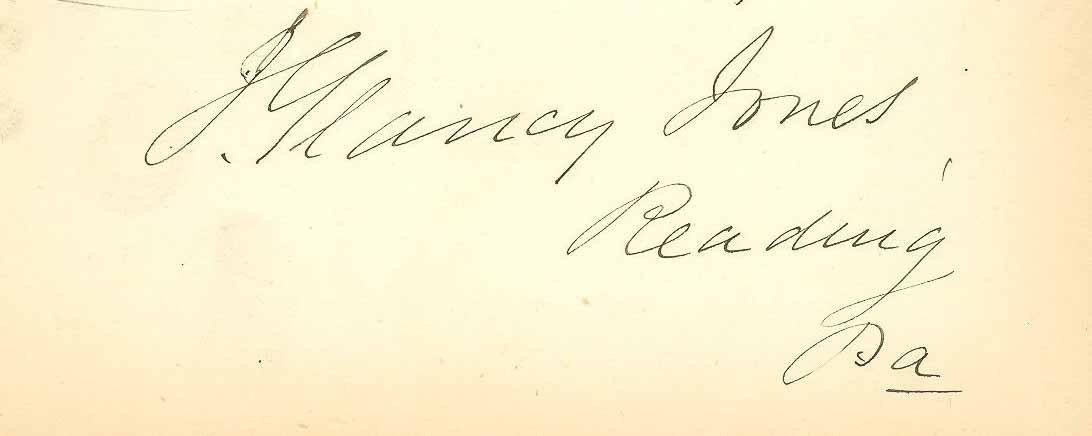 J. Glancy Jones
Reading
Pa